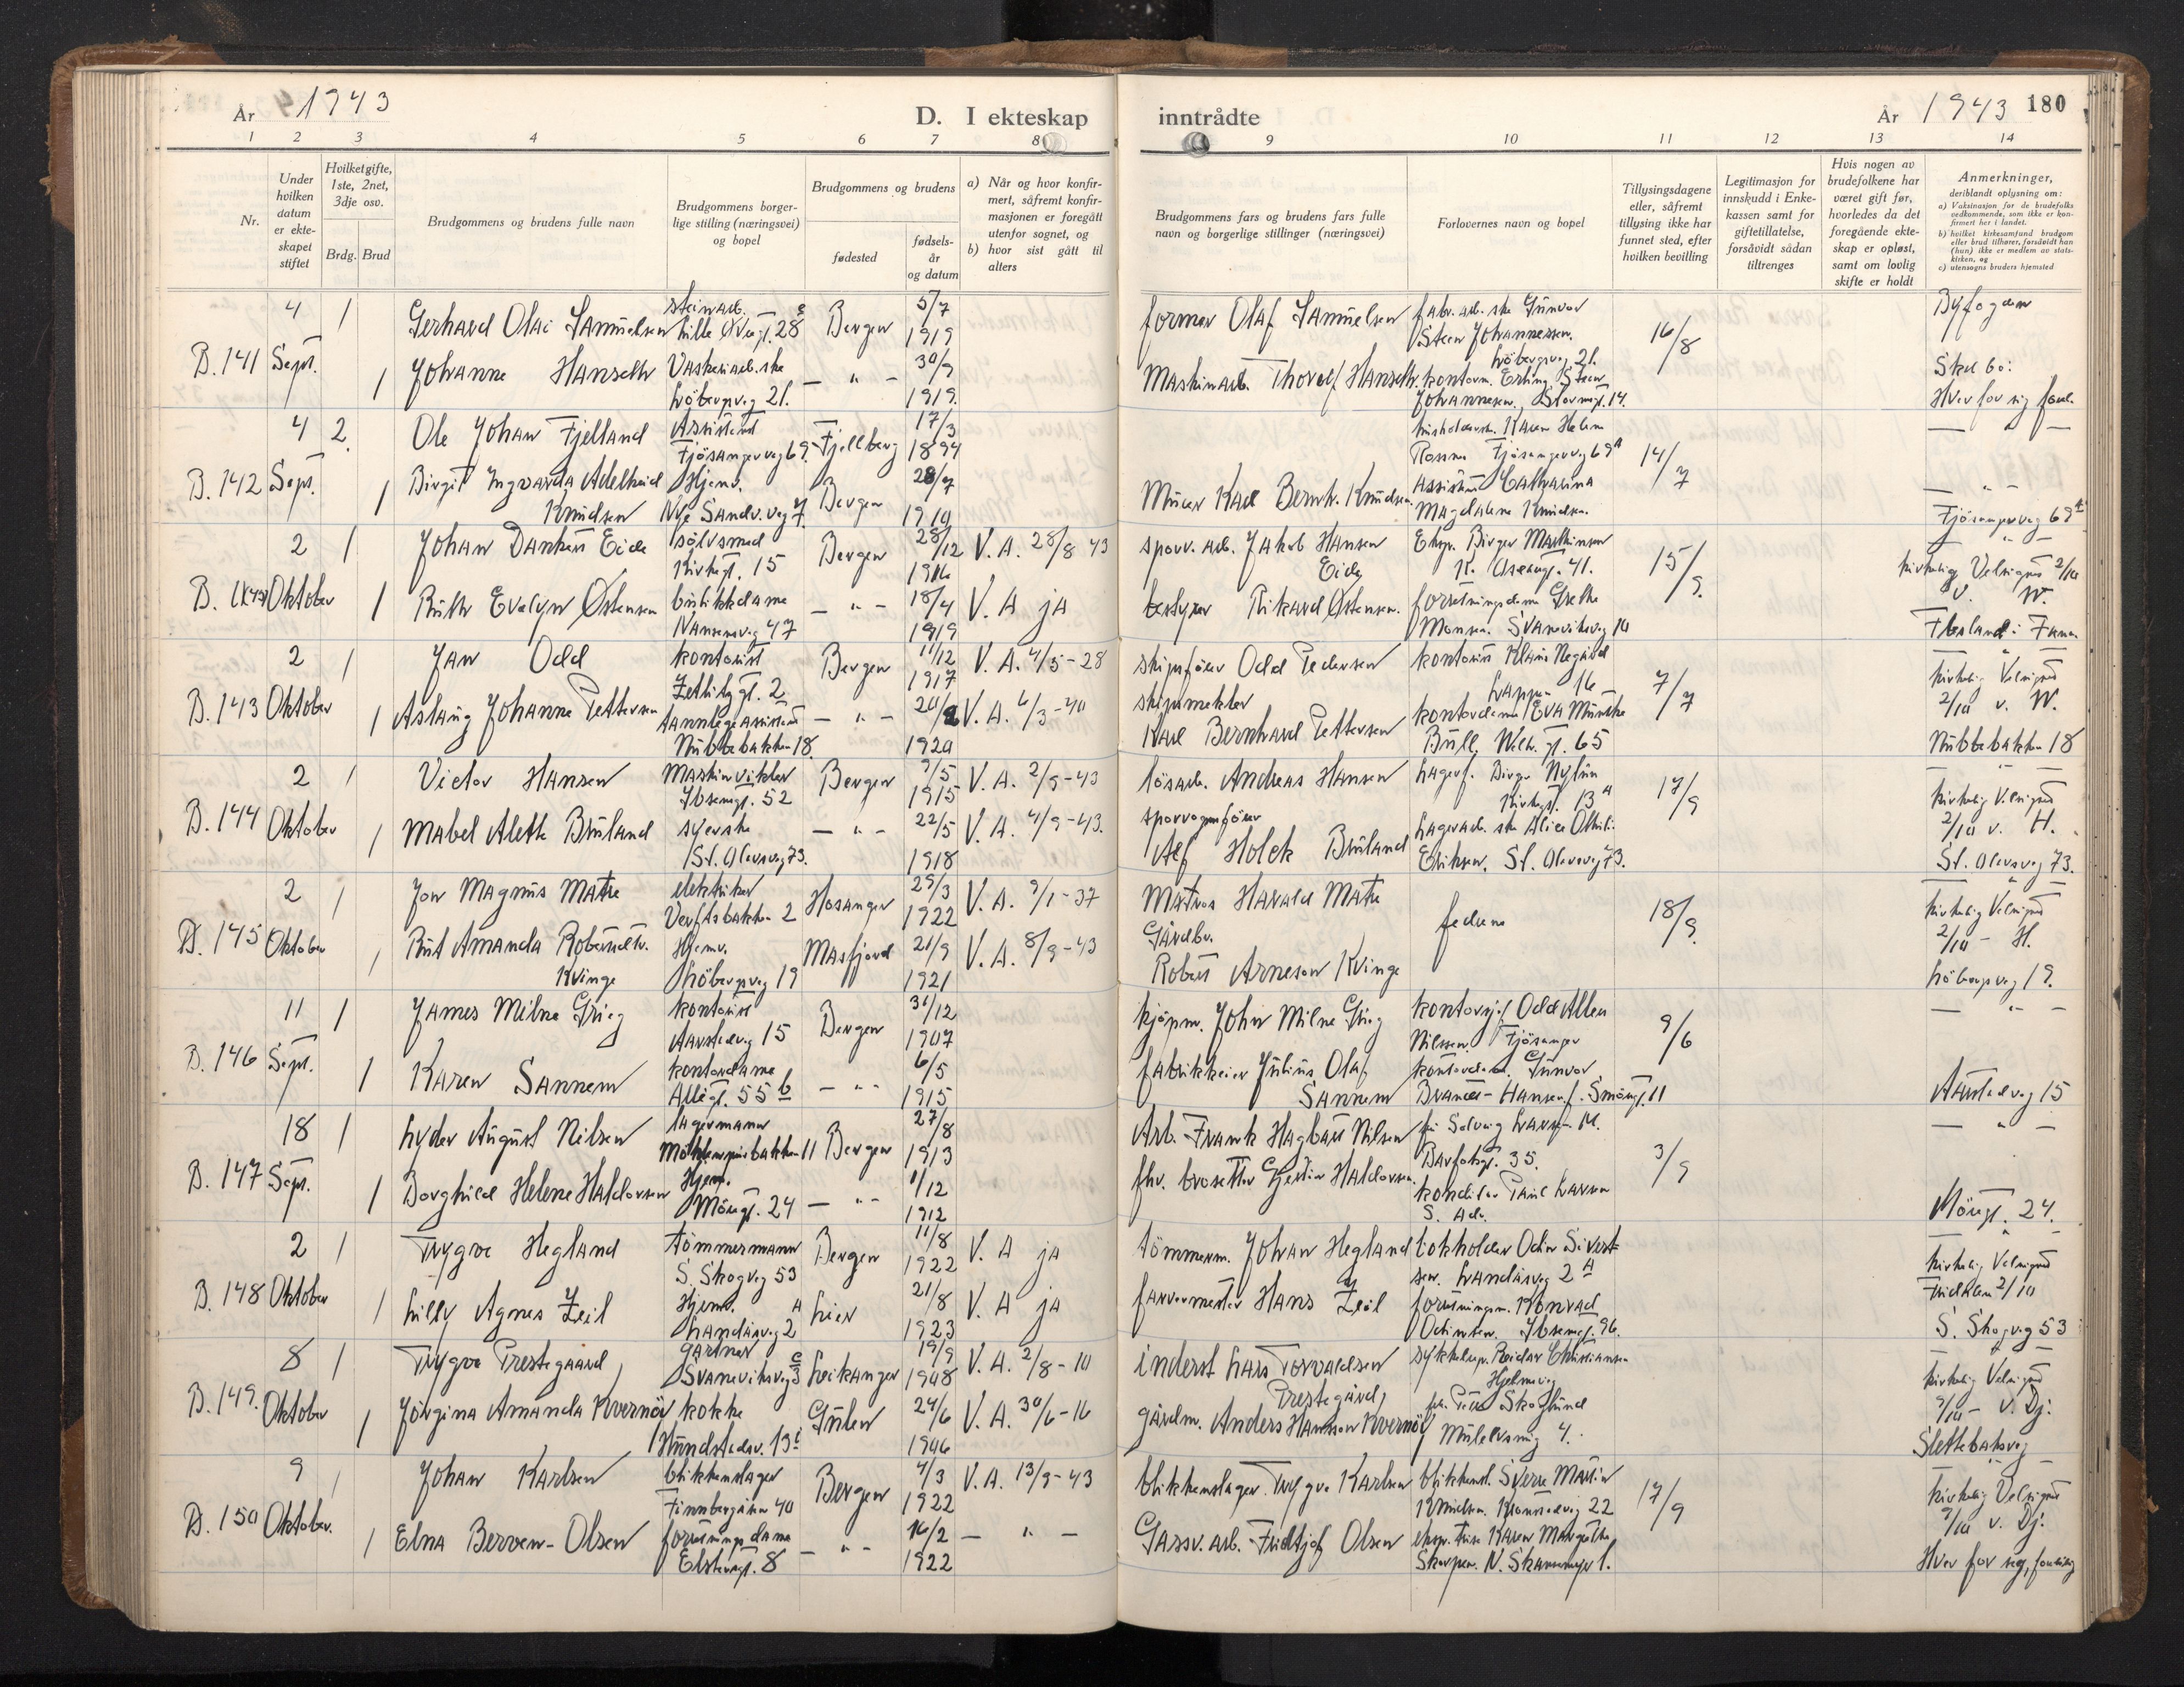 År 1943
D. I ekteskap inntrådte
År 1943 180
1 2 3 4 5 6 7 8 9 10 11 12 13 14
Nr.
Under hvilken datum er ekteskapet stiftet
Hvilket gifte, 1ste, 2net, 3dje osv.
Brdg. Brud
Brudgommens og brudens fulle navn
Brudgommens borgerlige stilling (næringsvei) og bopel
Brudgommens og brudens
fødested
fødselsår og datum
a) Når og hvor konfirmert, såfremt konfirmasjonen er foregått utenfor sognet, og
b) hvor sist gått til alters
Brudgommens fars og brudens fars fulle navn og borgerlige stillinger (næringsvei)
Forlovernes navn og bopel
Tillysingsdagene eller, såfremt tillysing ikke har funnet sted, efter hvilken bevilling
Legitimasjon for innskudd i Enkekassen samt for giftetillatelse, forsåvidt sådan tiltrenges
Hvis nogen av brudefolkene har været gift før, hvorledes da det foregående ekteskap er opløst, samt om lovlig skifte er holdt
Anmerkninger,
deriblandt oplysning om:
a) Vaksinasjon for de brudefolks vedkommende, som ikke er konfirmert her i landet.
b) hvilket kirkesamfund brudgom eller brud tilhører, forsåvidt han (hun) ikke er medlem av statskirken, og
c) utensogns bruders hjemsted
B. 141 4 Sept. 1 Gerhard Olai Samuelsen steinarb. 28 Bergen 5/7 1919 former Olaf Samuelsen fabr. arb. ske Gunvor Steen Johannessen. Löbergsveg 21. 16/8 Byfogden
1 Johanne Hanseth Vaskeriarb.ske Löbergsveg 21. — " — 30/9 1919. Maskinarb. Thorolf Hanseth. kontorm. Erling Steen Johannessen, 14. Skal bo: Hver for sig
B. 142 4 Sept. 2 Ole Johan Fjelland Assistent Fjösangerveg 69 Fjellberg 17/3 1894 Karen Helene Fjösangerveg 69A 14/7 — " —
1 Birgit Ingvarda Adelheid Knudsen Hjemv. Nye Sandv. veg 7. Bergen 28/7 1910 Murer Karl Bernh. Knudsen. Assistent Catharina Magdalene Knudsen. — " — Fjösangerveg 69A
B. 143 2 Oktober 1 Johan Eide sölvsmed Kirkegt. 15 Bergen 28/12 1916 V. A. 28/8 43 sporv. arb. Jakob Hansen Eide Eksp. Birger Martinsen 41. 15/9. — " — kirkelig Velsignet 2/10 v. W.
1 Ruth Evelyn Østensen butikkdame Nansensveg 47 — " — 18/4 1919 V. A ja bestyrer Rikard Østensen. forretningsdame Grethe Monsen. Svaneviksveg 10 Flesland i Fana
B. 143 2 Oktober 1 Jan Odd kontorist Zetlitzgt. 2 Bergen 11/12 1917 V. A. 4/5 - 28 skipsförer Odd Pedersen 16 7/7 — " — kirkelig Velsignet 2/10 v. W.
1 Aslaug Johanne Pettersen tannlegeassistent Nubbebakken 18 — " — 1920 V. A. 6/3 - 40 skipsmekler Karl Bernhard Pettersen kontordame Eva Munthe Bull, Welh. gt. 65 Nubbebakken 18
B. 144 2 Oktober 1 Victor Hansen Maskinvikler Ibsensgt. 52 Bergen 9/5 1915 V. A. 2/9 - 43 lösarb. Andreas Hansen Lagerf. Birger Nylun Kirkegt. 13A 17/9 — " — kirkelig Velsignet 2/10 v. H.
1 Mabel Alette Bruland syerske St. Olavsveg 73. — " — 22/5 1918 V. A. 4/9 - 43. sporvognförer Alf Holck Bruland Lagerarb. ske Alice Othili: Eriksen. St. Olavsveg 73. St. Olavsveg 73.
B. 145 2 Oktober 1 Jon Magnus Matre elektriker Verftsbakken 2 Hosanger 29/3 1922 V. A. 9/1 - 37 Matros Harald Matre fedrene 18/9. — " — kirkelig Velsignet 2/10 - H.
1 Rut Amanda Robertsdtr. Kvinge Hjemv. Löbergsveg 19 Masfjord 21/9 1921 V. A. 8/9 - 43 Gårdbr. Robert Arneson Kvinge Löbergsveg 19.
B. 146 11 Sept. 1 James Milne Grieg kontorist Aarstadveg 15 Bergen 31/12 1907 kjöpm. John Milne Grieg kontorsjef Odd Allen Nilssen, Fjösanger 9/6 — " —
1 Karen Sannem kontordame Allégt. 55b — " — 6/5 1915 fabrikkeier Julius Olaf Sannem kontordame Gunvor Hansen, f. 11 Aarstadveg 15
B. 147 18 Sept. 1 Lyder August Nilsen lagermann Möhlenprisbakken 11 Bergen 27/8 1913 Arb. Frank Hagbart Nilsen fru Solveig Larsen 14. 35. 3/9 — " —
1 Borghild Helene Haldorsen Hjem. Möregt. 24 — " — 1/12 1912 fhv. brosetter Haldorsen. konditor Paul Larsen S. Adr. Möregt. 24.
B. 148 2 Oktober 1 Trygve Hegland tömmermann S. Skogveg 53 Bergen 11/8 1922 V. A ja tömmerm. Johan Hegland bokholder Odin Sivertsen. Landåsveg 2A — " — kirkelig Velsignet Fridalen 2/10
1 Lilly Agnes Zeil Hjemv. Landåsveg 2A Lier 21/8 1923 V. A ja farvermester Hans Zeil forretningsm. Konrad Ibsensgt. 96. S. Skogveg 53
B. 149. 8 Oktober 1 Trygve Prestegaard, gartner Svaneviksveg Leikanger 19/9 1908 V. A. 2/8 - 10 inderst Lars Torvaldsen Prestegård, sykkelrep. Reidar Christiansen Hjelmeveg — " — kirkelig Velsignet 9/10 - v. Dj.
1 Jörgina Amanda Kvernöy kokke Gulen 24/6 1906 V. A. 30/6 - 16 gårdm. Anders Hansson Kvernöy Skoglund 4. Slettebaksveg
B. 150 9 Oktober. 1 Johan Karlsen blikkenslager Finnbergåsen 40 Bergen 4/3 1922 V. A. 13/9 - 43 blikkenslager. Trygve Karlsen blikkensl. Sverre Martin Knudsen. 22 17/9 — " — kirkelig Velsignet 9/10 v. Dj.
1 Elna Berven-Olsen forretningsdame Elstersgt. 8 — " — 16/2 1922 — " — Gassv. arb. Fridtjof Olsen Karen Margrethe N. 1. Hver for seg,